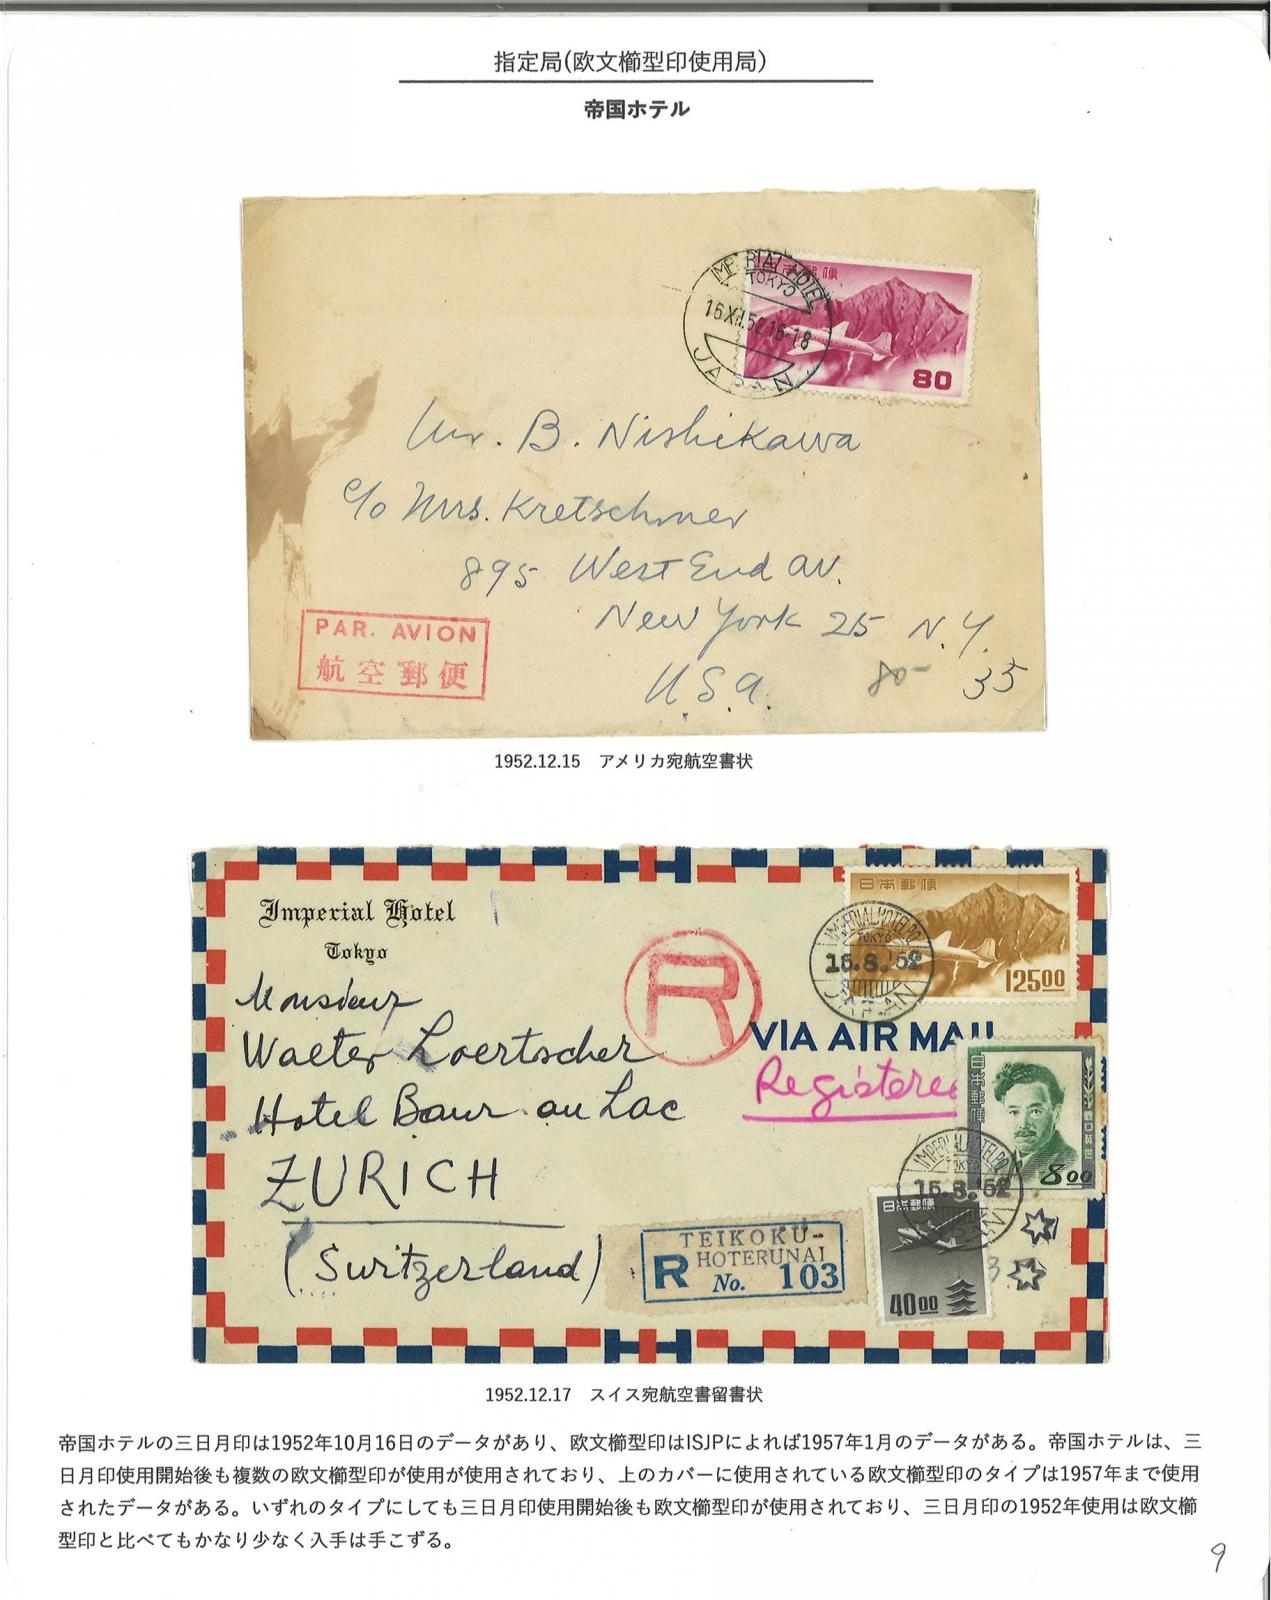 指定局(欧文櫛型印使用局)
帝国ホテル
IMPERIAL HOTEL
TOKYO
16.XII.52.16-18
JAPAN
日本郵便
80
Mr. B. Nishikawa
c/o Mrs. Kretschmer
895 West End av.
New York 25 N.Y.
U.S.a.
80-
35
PAR. AVION
航空郵便
1952.12.15 アメリカ宛航空書状
Imperial Hotel
Tokyo
日本郵便
12500
IMPERIAL HOTEL P.O.
TOKYO
JAPAN
R
VIA AIR MAIL
Registered
Monsieur
Walter Loertscher
Hotel Baur au Lac
ZURICH
(Switzerland)
日本郵便
800
IMPERIAL HOTEL P.O.
TOKYO
日本郵便
4000
TEIKOKU-
HOTERUNAI
R No. 103
1952.12.17 スイス宛航空書留書状
帝国ホテルの三日月印は1952年10月16日のデータがあり、欧文櫛型印はISJPによれば1957年1月のデータがある。帝国ホテルは、三
日月印使用開始後も複数の欧文櫛型印が使用が使用されており、上のカバーに使用されている欧文櫛型印のタイプは1957年まで使用
されたデータがある。いずれのタイプにしても三日月印使用開始後も欧文櫛型印が使用されており、三日月印の1952年使用は欧文櫛
型印と比べてもかなり少なく入手は手こずる。
9